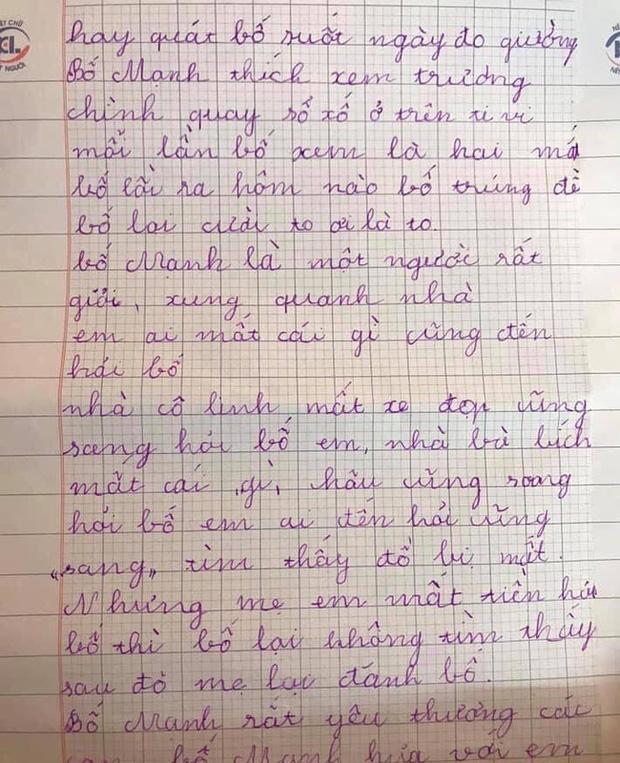 hay quát bố suốt ngày do giường
Bố Mạnh thích xem trương
chình quay số xố ở trên ti vi
mỗi lần bố xem là hai má
bố lồi ra hôm nào bố trúng đề
bố lại cười to ơi là to.
bố Mạnh là một người rất
giỏi, xung quanh nhà
em ai mất cái gì cũng đến
hỏi bố
nhà cô linh mất xe đạp cũng
sang hỏi bố em, nhà bà bích
mất cái gì, cũng sang
hỏi bố em ai đến hỏi cũng
"sang" tìm thấy đồ bị mất.
Nhưng mẹ em mất tiền hỏi
bố thì bố lại không tìm thấy
sau đó mẹ lại đánh bố.
Bố Mạnh rất yêu thương các
bố Mạnh hứa với em